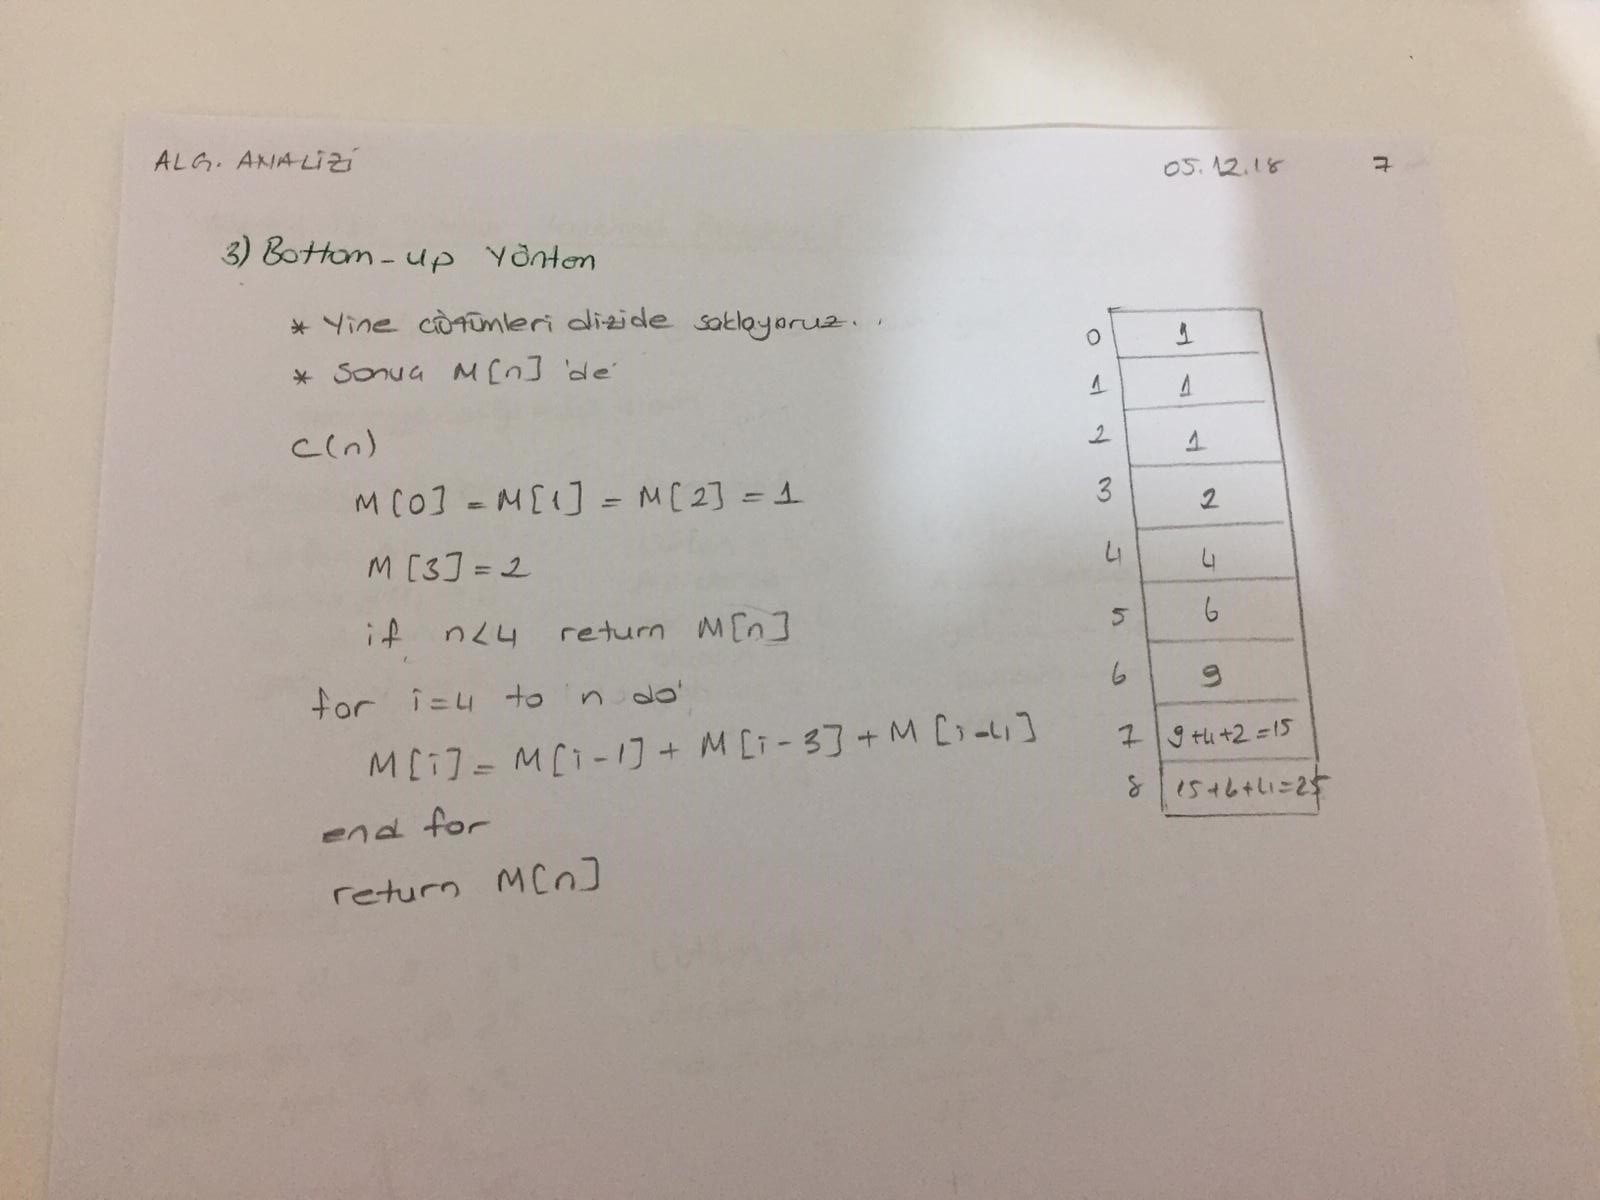 ALG. ANALİZİ 05.12.18 7
3) Bottom-up Yöntem
* Yine çözümleri dizide saklıyoruz..
* Sonuç M[n] 'de
C(n)
M[0] = M[1] = M[2] = 1
M[3] = 2
if n<4 return M[n]
for i=4 to n do
M[i] = M[i-1] + M[i-3] + M[i-4]
end for
return M[n]
0 1
1 1
2 1
3 2
4 4
5 6
6 9
7 9+4+2=15
8 15+6+4=25